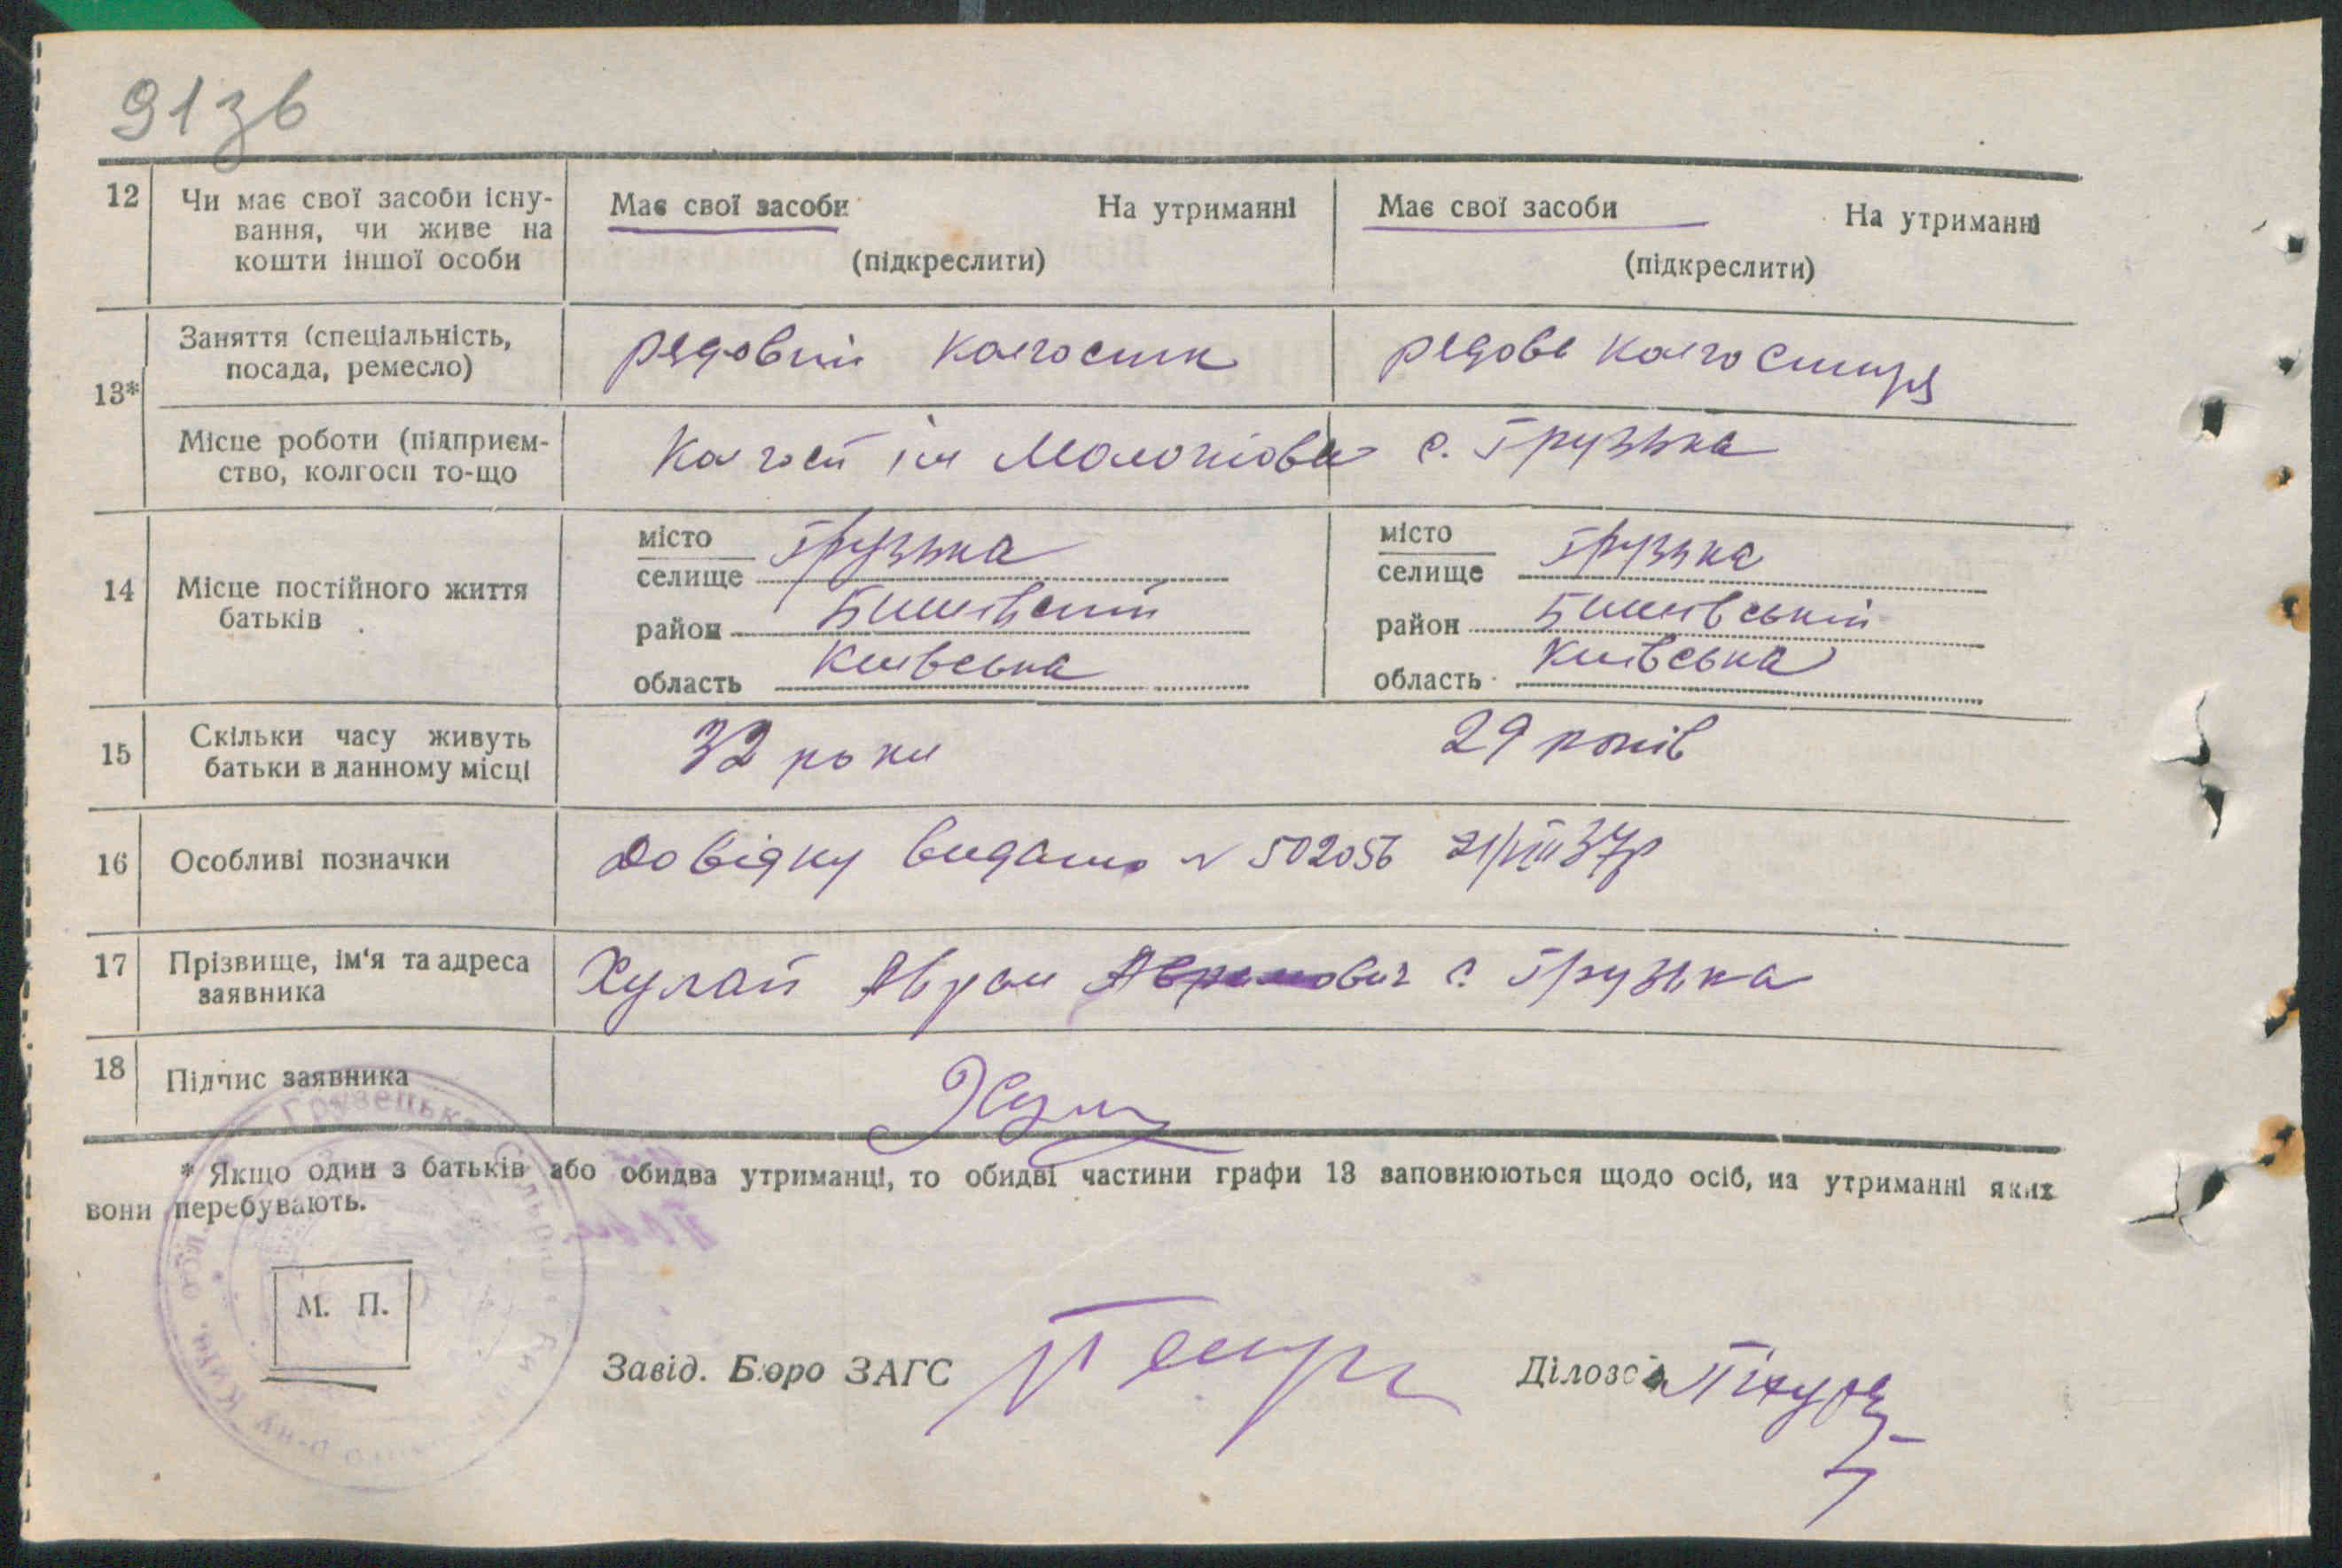 91зв
12 Чи має свої засоби існу-
вання, чи живе на
кошти іншої особи
Має свої засоби На утриманні
(підкреслити)
Має свої засоби На утриманні
(підкреслити)
13*
Заняття (спеціальність,
посада, ремесло)
рядовий колгосник
рядова колгосниця
Місце роботи (підприєм-
ство, колгосп то-що
Колгосп ім Молотова с. Грузька
14 Місце постійного життя
батьків
місто
селище Грузька
район Бишівский
область Київська
місто
селище Грузька
район Бишівський
область Київська
15 Скільки часу живуть
батьки в данному місці
32 роки
29 років
16 Особливі позначки
Довідку видано № 502056 21/VIII 37р
17 Прізвище, ім'я та адреса
заявника
Хулап Аврам Аврамович с. Грузька
18 Підпис заявника
* Якщо один з батьків або обидва утриманці, то обидві частини графи 13 заповнюються щодо осіб, на утриманні яких
вони перебувають.
М. П.
Завід. Бюро ЗАГС
Діловод
Грузецька Сільрада